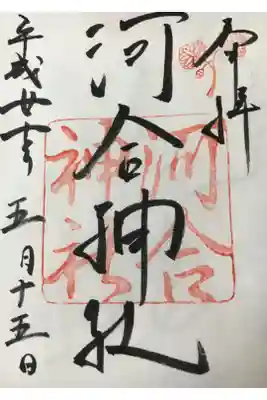 奉拝
河合神社
河合
神社
平成廿 年 五月十五日